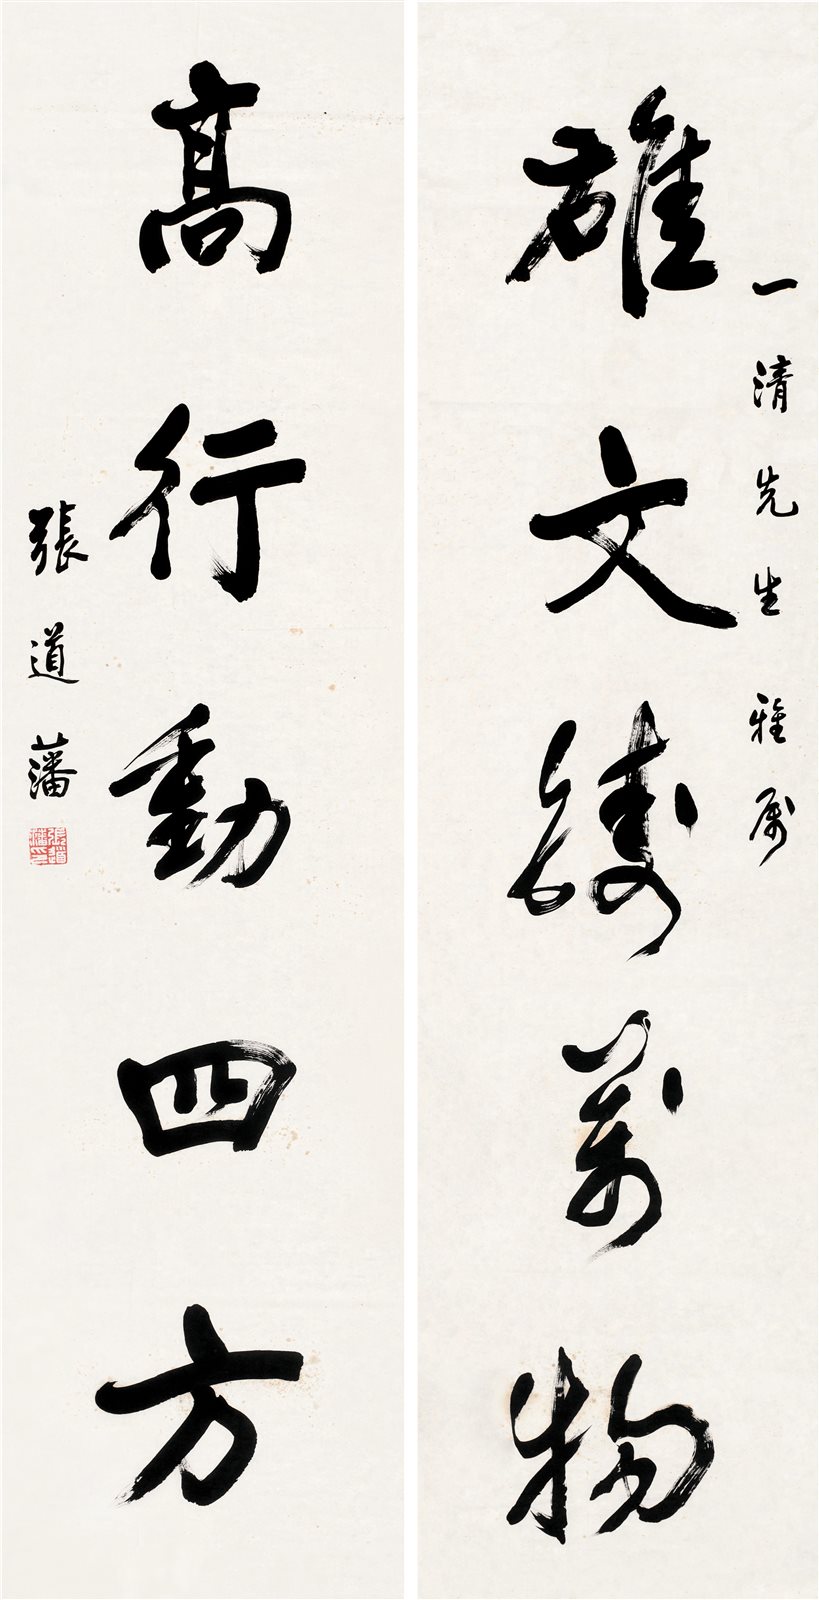 一清先生雅屬
雄文鑄萬物
高行動四方
張道藩
張道藩印